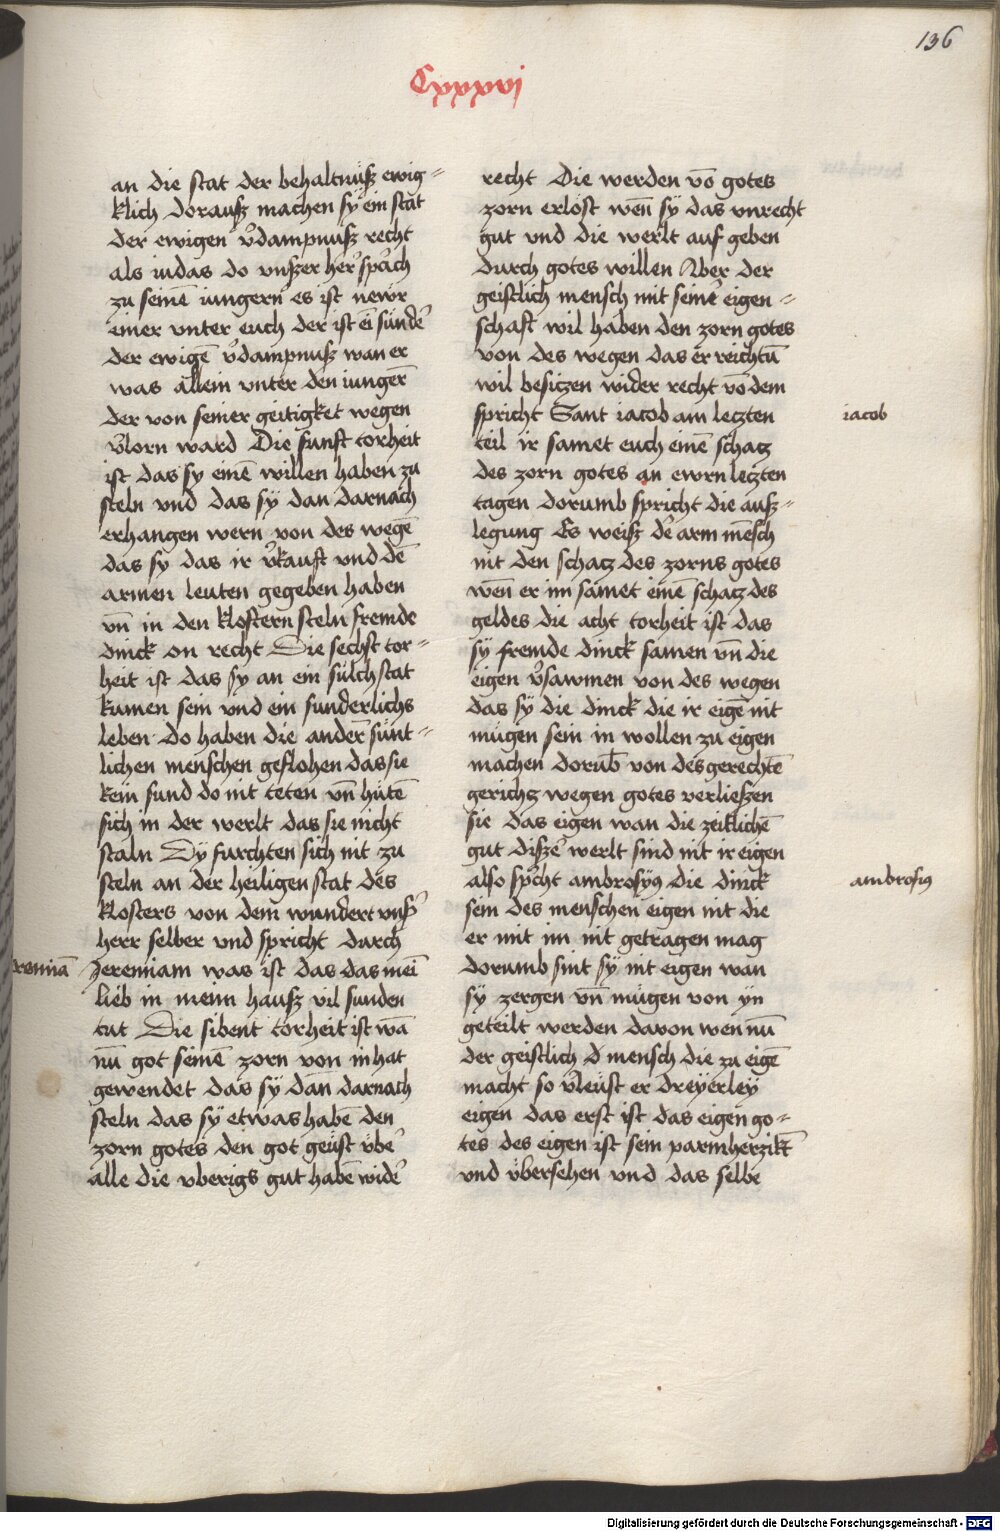 136
Cxxxvj
an die stat der behaltnüsz ewig=
klich dorausz machen sÿ ein stat
der ewigen v̉dampnusz recht
als iudas do vnszer her̉ sp̉ach
zu seinē iungern es ist newr
einer vnter euch der ist eī sünd̉
der ewigē v̉dampnusz wan er
was allein vnter den iunger̄
der von seiner geitigket wegen
v̉lorn ward Die funft torheit
ist das sy einē willen haben zu
steln vnd das sÿ dan darnach
erhangen wern von des wegē
das sy das ir v̉kauft vnd dē
armen leuten gegeben haben
vn̄ in den klostern steln fremde
dinck on recht Die sechst tor=
heit ist das sy an ein sülch stat
kumen sein vnd ein sunderlichs
leben do haben die ander̄ sünt=
lichen menschen geflohen das sie
kein sund do nit teten vn̄ hütē
sich in der werlt das sie nicht
staln Dÿ furchten sich nit zu
steln an der heiligen stat des
klosters von dem wundert vnsz̉
herr selber vnd spricht durch
remiā
Jeremiam was ist das das mei
lieb in meim hausz vil sunden
tut Die sibent torheit ist wā
nū got seinē zorn von in hat
gewendet das sÿ dan darnach
steln das sÿ etwas habē den
zorn gotes den got geüst vb̉
alle die vberigs gut habē wid̉
recht Die werden vō gotes
zorn erlost wen̄ sÿ das vnrecht
gut vnd die werlt auf geben
durch gotes willen Aber der
geistlich mensch mit seinē eigen=
schaft wil haben den zorn gotes
von des wegen das er reichtū
wil besiczen wider recht vō dem
spricht Sant iacob am leczten
iacob
teil ir samet euch einē schacz
des zorn gotes an ewrn leczten
tagen dorumb spricht die ausz=
legung Es weisz d̉ arm mēsch
nit den schacz des zorns gotes
wen̄ er im samet einē schacz des
geldes die acht torheit ist das
sÿ fremde dinck samen vn̄ die
eigen v̉sawmen von des wegen
das sÿ die dinck die ir eigē nit
mügen sein in wollen zu eigen
machen dorūb von des gerechtē
gerichcz wegen gotes verlieszen
sie das eigen wan die zeitlichē
gut disz̉ werlt sind nit ir eigen
also sp̉cht ambrosÿꝰ die dinck
ambrosiꝰ
sein des menschen eigen nit die
er mit im nit getragen mag
dorumb sint sÿ nit eigen wan
sÿ zergen vn̄ mügen von yn
geteilt werden davon wen nū
der geistlich d̉ mensch die zu eigē
macht so v̉leüst er dreyerley
eigen das erst ist das eigen go=
tes des eigen ist sein parmherzikt̄
vnd übersehen vnd das selbe
Digitalisierung gefördert durch die Deutsche Forschungsgemeinschaft - DFG